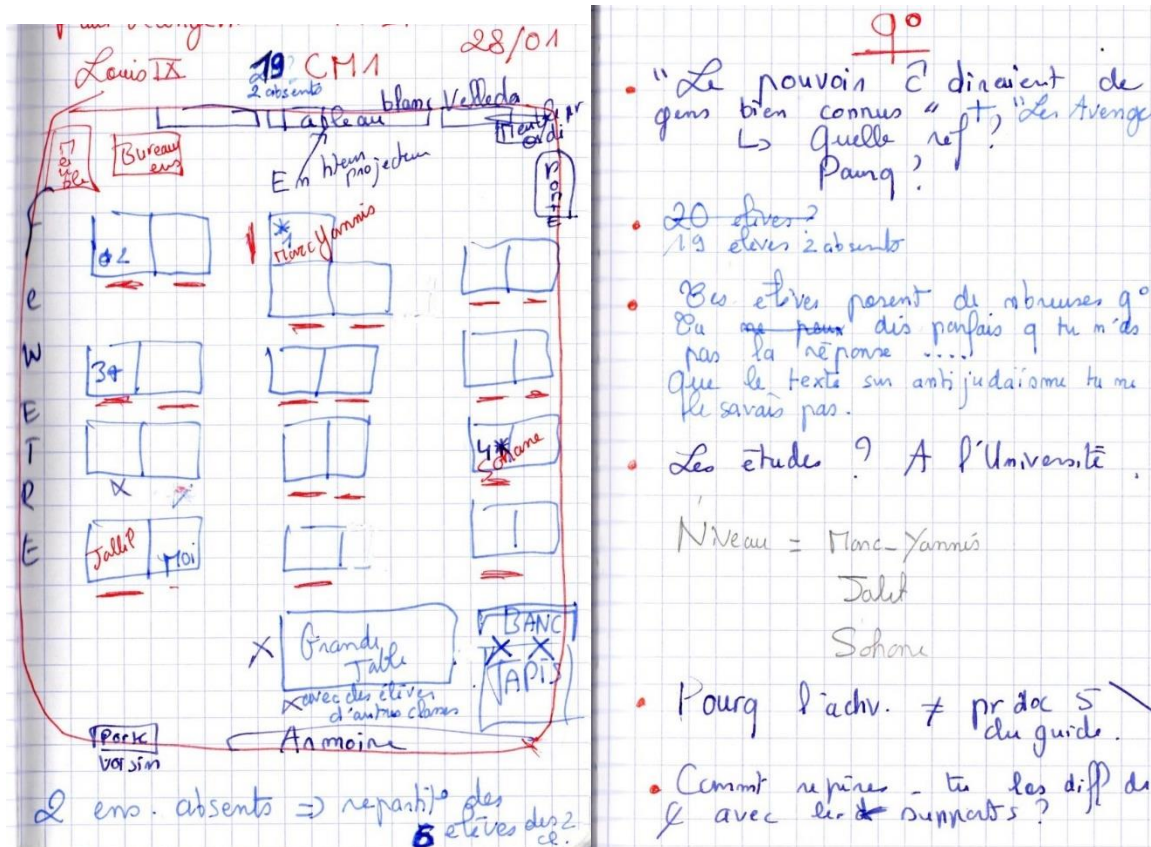 Louis IX
19 CM1
28/01
2 absents
blanc Velleda
Tableau
Meuble
Bureau
ens
projecteur
Porte
F
e
N
E
T
R
E
2
*
1
Marc Yannis
3
1
4*
Sohane
Jallil
Moi
Grande
Table
avec des élèves
d'autres classes
BANC
TAPIS
Porte
voisin
Armoire
2 ens. absents => repartit° des
5 elèves des 2
cl.
q°
"Le pouvoir c̄ diraient de
gens bien connus" + "Les Avenge
↳ Quelle ref?
Pourq?
20 elèves?
19 elèves 2 absents
Tes elèves posent de nbreuses q°
Tu ne peux dis parfois q tu n'as
pas la réponse ....
Que le texte sur antijudaïsme tu ne
le savais pas.
Les études ? A l'Université.
Niveau = Marc-Yannis
Jalil
Sohane
Pourq l'actv. ≠ pr doc 5
du guide.
Commt repères-tu les diff de
avec les supports ?